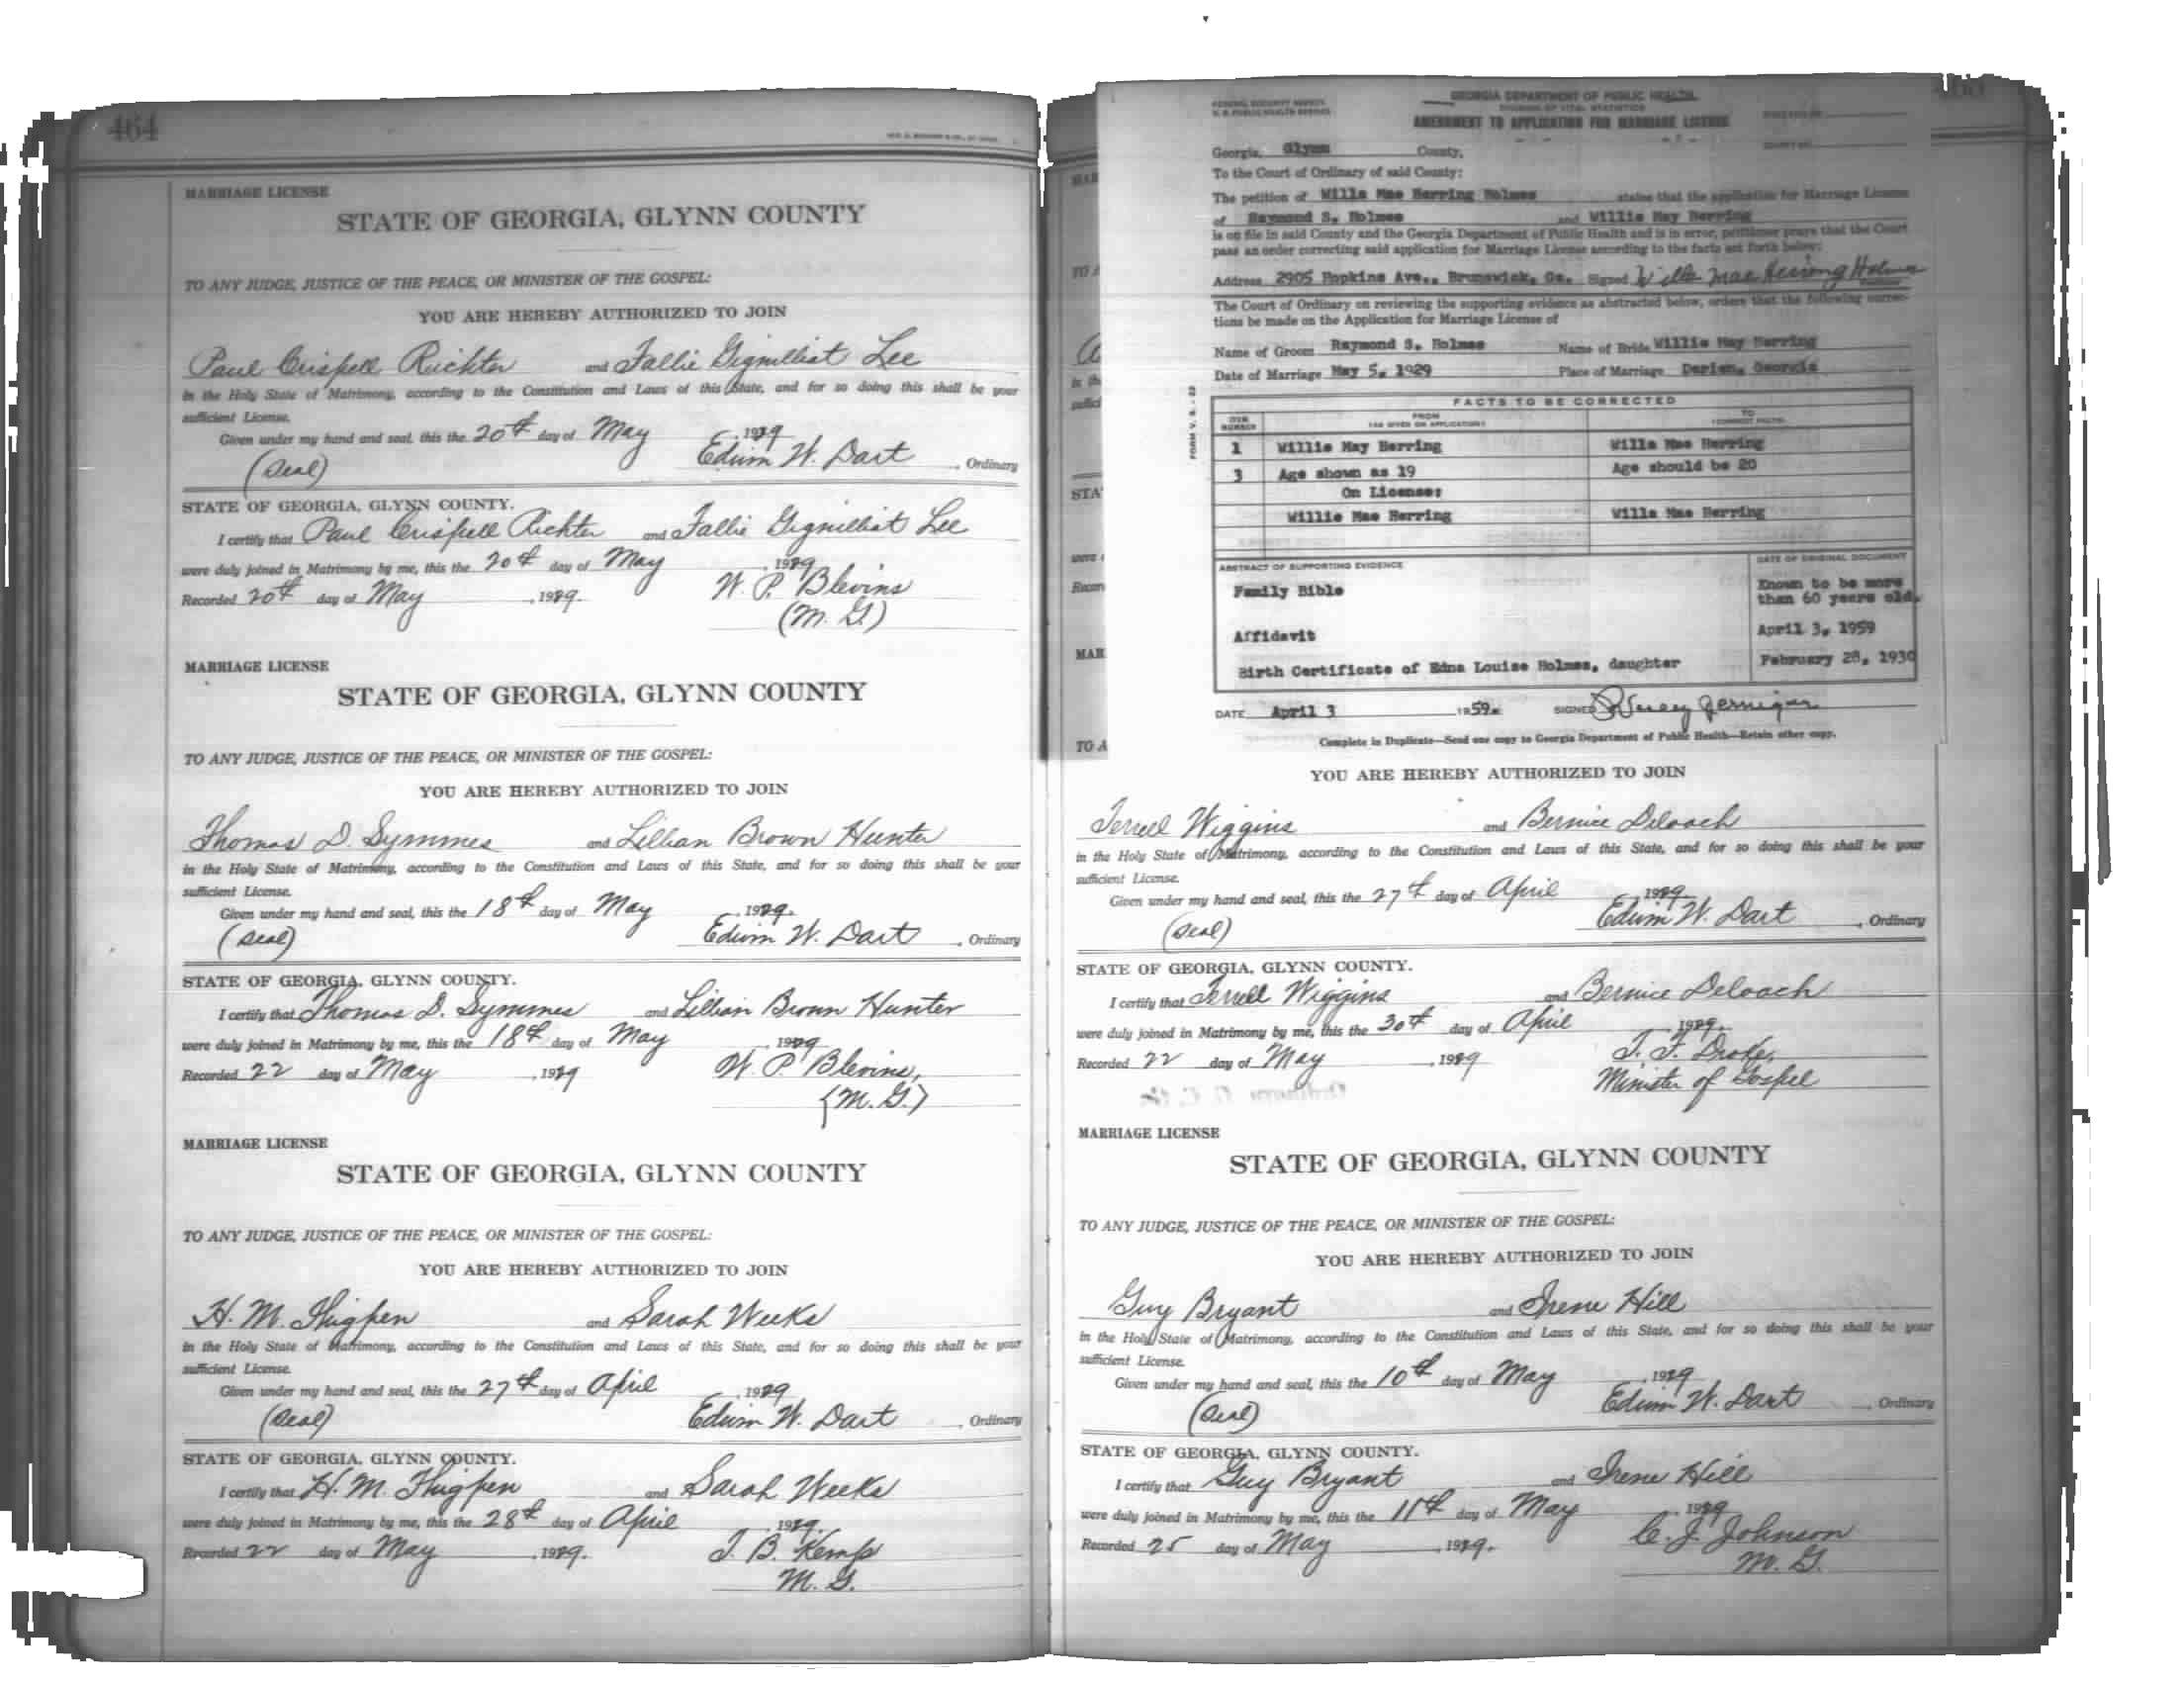 464
MARRIAGE LICENSE
STATE OF GEORGIA, GLYNN COUNTY
TO ANY JUDGE, JUSTICE OF THE PEACE, OR MINISTER OF THE GOSPEL:
YOU ARE HEREBY AUTHORIZED TO JOIN
Paul Crispell Richter and Fallie Gignilliat Lee
in the Holy State of Matrimony, according to the Constitution and Laws of this State, and for so doing this shall be your
sufficient License.
Given under my hand and seal, this the 20th day of May, 1929
(Seal) Edwin W. Dart, Ordinary
STATE OF GEORGIA, GLYNN COUNTY.
I certify that Paul Crispell Richter and Fallie Gignilliat Lee
were duly joined in Matrimony by me, this the 20th day of May, 1929
Recorded 20th day of May, 1929. W. P. Blevins
(M. G.)
MARRIAGE LICENSE
STATE OF GEORGIA, GLYNN COUNTY
TO ANY JUDGE, JUSTICE OF THE PEACE, OR MINISTER OF THE GOSPEL:
YOU ARE HEREBY AUTHORIZED TO JOIN
Thomas D. Symmes and Lillian Brown Hunter
in the Holy State of Matrimony, according to the Constitution and Laws of this State, and for so doing this shall be your
sufficient License.
Given under my hand and seal, this the 18th day of May, 1929.
(Seal) Edwin W. Dart, Ordinary
STATE OF GEORGIA, GLYNN COUNTY.
I certify that Thomas D. Symmes and Lillian Brown Hunter
were duly joined in Matrimony by me, this the 18th day of May, 1929
Recorded 22 day of May, 1929 W. P. Blevins,
(M. G.)
MARRIAGE LICENSE
STATE OF GEORGIA, GLYNN COUNTY
TO ANY JUDGE, JUSTICE OF THE PEACE, OR MINISTER OF THE GOSPEL:
YOU ARE HEREBY AUTHORIZED TO JOIN
H. M. Thigpen and Sarah Weeks
in the Holy State of Matrimony, according to the Constitution and Laws of this State, and for so doing this shall be your
sufficient License.
Given under my hand and seal, this the 27th day of April, 1929
(Seal) Edwin W. Dart, Ordinary
STATE OF GEORGIA, GLYNN COUNTY.
I certify that H. M. Thigpen and Sarah Weeks
were duly joined in Matrimony by me, this the 28th day of April, 1929.
Recorded 22 day of May, 1929. J. B. Kemp
M. G.
FEDERAL SECURITY AGENCY
U. S. PUBLIC HEALTH SERVICE
GEORGIA DEPARTMENT OF PUBLIC HEALTH
DIVISION OF VITAL STATISTICS
AMENDMENT TO APPLICATION FOR MARRIAGE LICENSE
Georgia, Glynn County,
To the Court of Ordinary of said County:
The petition of Willa Mae Herring Holmes states that the application for Marriage License
of Raymond S. Holmes and Willie May Herring
is on file in said County and the Georgia Department of Public Health and is in error, petitioner prays that the Court
pass an order correcting said application for Marriage License according to the facts set forth below:
Address 2905 Hopkins Ave., Brunswick, Ga. Signed Willa Mae Herring Holmes
The Court of Ordinary on reviewing the supporting evidence as abstracted below, orders that the following correc-
tions be made on the Application for Marriage License of
Name of Groom Raymond S. Holmes Name of Bride Willie May Herring
Date of Marriage May 5, 1929 Place of Marriage Darien, Georgia
FORM V. S. - 22
FACTS TO BE CORRECTED
ITEM NUMBER FROM (AS GIVEN ON APPLICATION) TO (CORRECT FACTS)
1 Willie May Herring Willa Mae Herring
3 Age shown as 19 Age should be 20
On License:
Willie Mae Herring Willa Mae Herring
ABSTRACT OF SUPPORTING EVIDENCE DATE OF ORIGINAL DOCUMENT
Family Bible Known to be more
than 60 years old.
Affidavit April 3, 1959
Birth Certificate of Edna Louise Holmes, daughter February 28, 1930
DATE April 3 1959. SIGNED Jernigan
Complete in Duplicate—Send one copy to Georgia Department of Public Health—Retain other copy.
YOU ARE HEREBY AUTHORIZED TO JOIN
Terrell Wiggins and Bernice Deloach
in the Holy State of Matrimony, according to the Constitution and Laws of this State, and for so doing this shall be your
sufficient License.
Given under my hand and seal, this the 27th day of April 1929
(Seal) Edwin W. Dart, Ordinary
STATE OF GEORGIA, GLYNN COUNTY.
I certify that Terrell Wiggins and Bernice Deloach
were duly joined in Matrimony by me, this the 30th day of April, 1929.
Recorded 22 day of May, 1929 J. F. Drake,
Minister of Gospel
MARRIAGE LICENSE
STATE OF GEORGIA, GLYNN COUNTY
TO ANY JUDGE, JUSTICE OF THE PEACE, OR MINISTER OF THE GOSPEL:
YOU ARE HEREBY AUTHORIZED TO JOIN
Guy Bryant and Irene Hill
in the Holy State of Matrimony, according to the Constitution and Laws of this State, and for so doing this shall be your
sufficient License.
Given under my hand and seal, this the 10th day of May, 1929
(Seal) Edwin W. Dart, Ordinary
STATE OF GEORGIA, GLYNN COUNTY.
I certify that Guy Bryant and Irene Hill
were duly joined in Matrimony by me, this the 11th day of May, 1929
Recorded 25 day of May, 1929. C. J. Johnson
M. G.